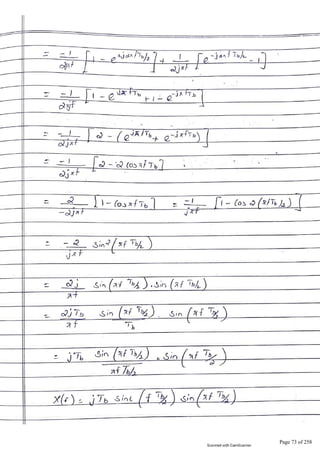 = -1/2jπf [1 - e^j2πfTb/2] + 1/2jπf [e^-j2πfTb/2 - 1]
= -1/2jπf [1 - e^jπfTb + 1 - e^-jπfTb]
= -1/2jπf [2 - (e^jπfTb + e^-jπfTb)]
= -1/2jπf [2 - 2 cosπfTb]
= 2/-2jπf [1 - cosπfTb] = -1/jπf [1 - cos 2(πfTb/2)]
= -2/jπf sin²(πf Tb/2)
= 2j/πf sin(πf Tb/2).sin(πf Tb/2)
= 2jTb/πf sin(πf Tb/2)/Tb sin(πf Tb/2)
= jTb sin(πf Tb/2)/πf Tb/2 . sin(πf Tb/2)
X(f) = jTb sinc(f Tb/2) sin(πf Tb/2)
Scanned with CamScanner
Page 73 of 258